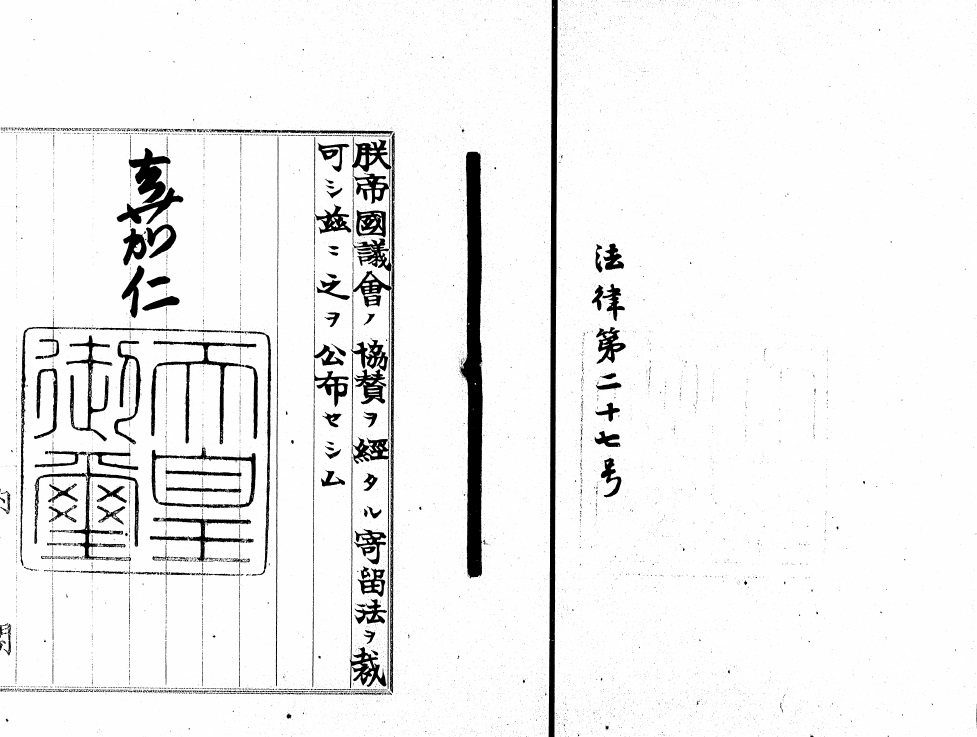 法律第二十七号
朕帝國議會ノ協賛ヲ經タル寄留法ヲ裁
可シ茲ニ之ヲ公布セシム
嘉仁
天皇
御璽
内閣